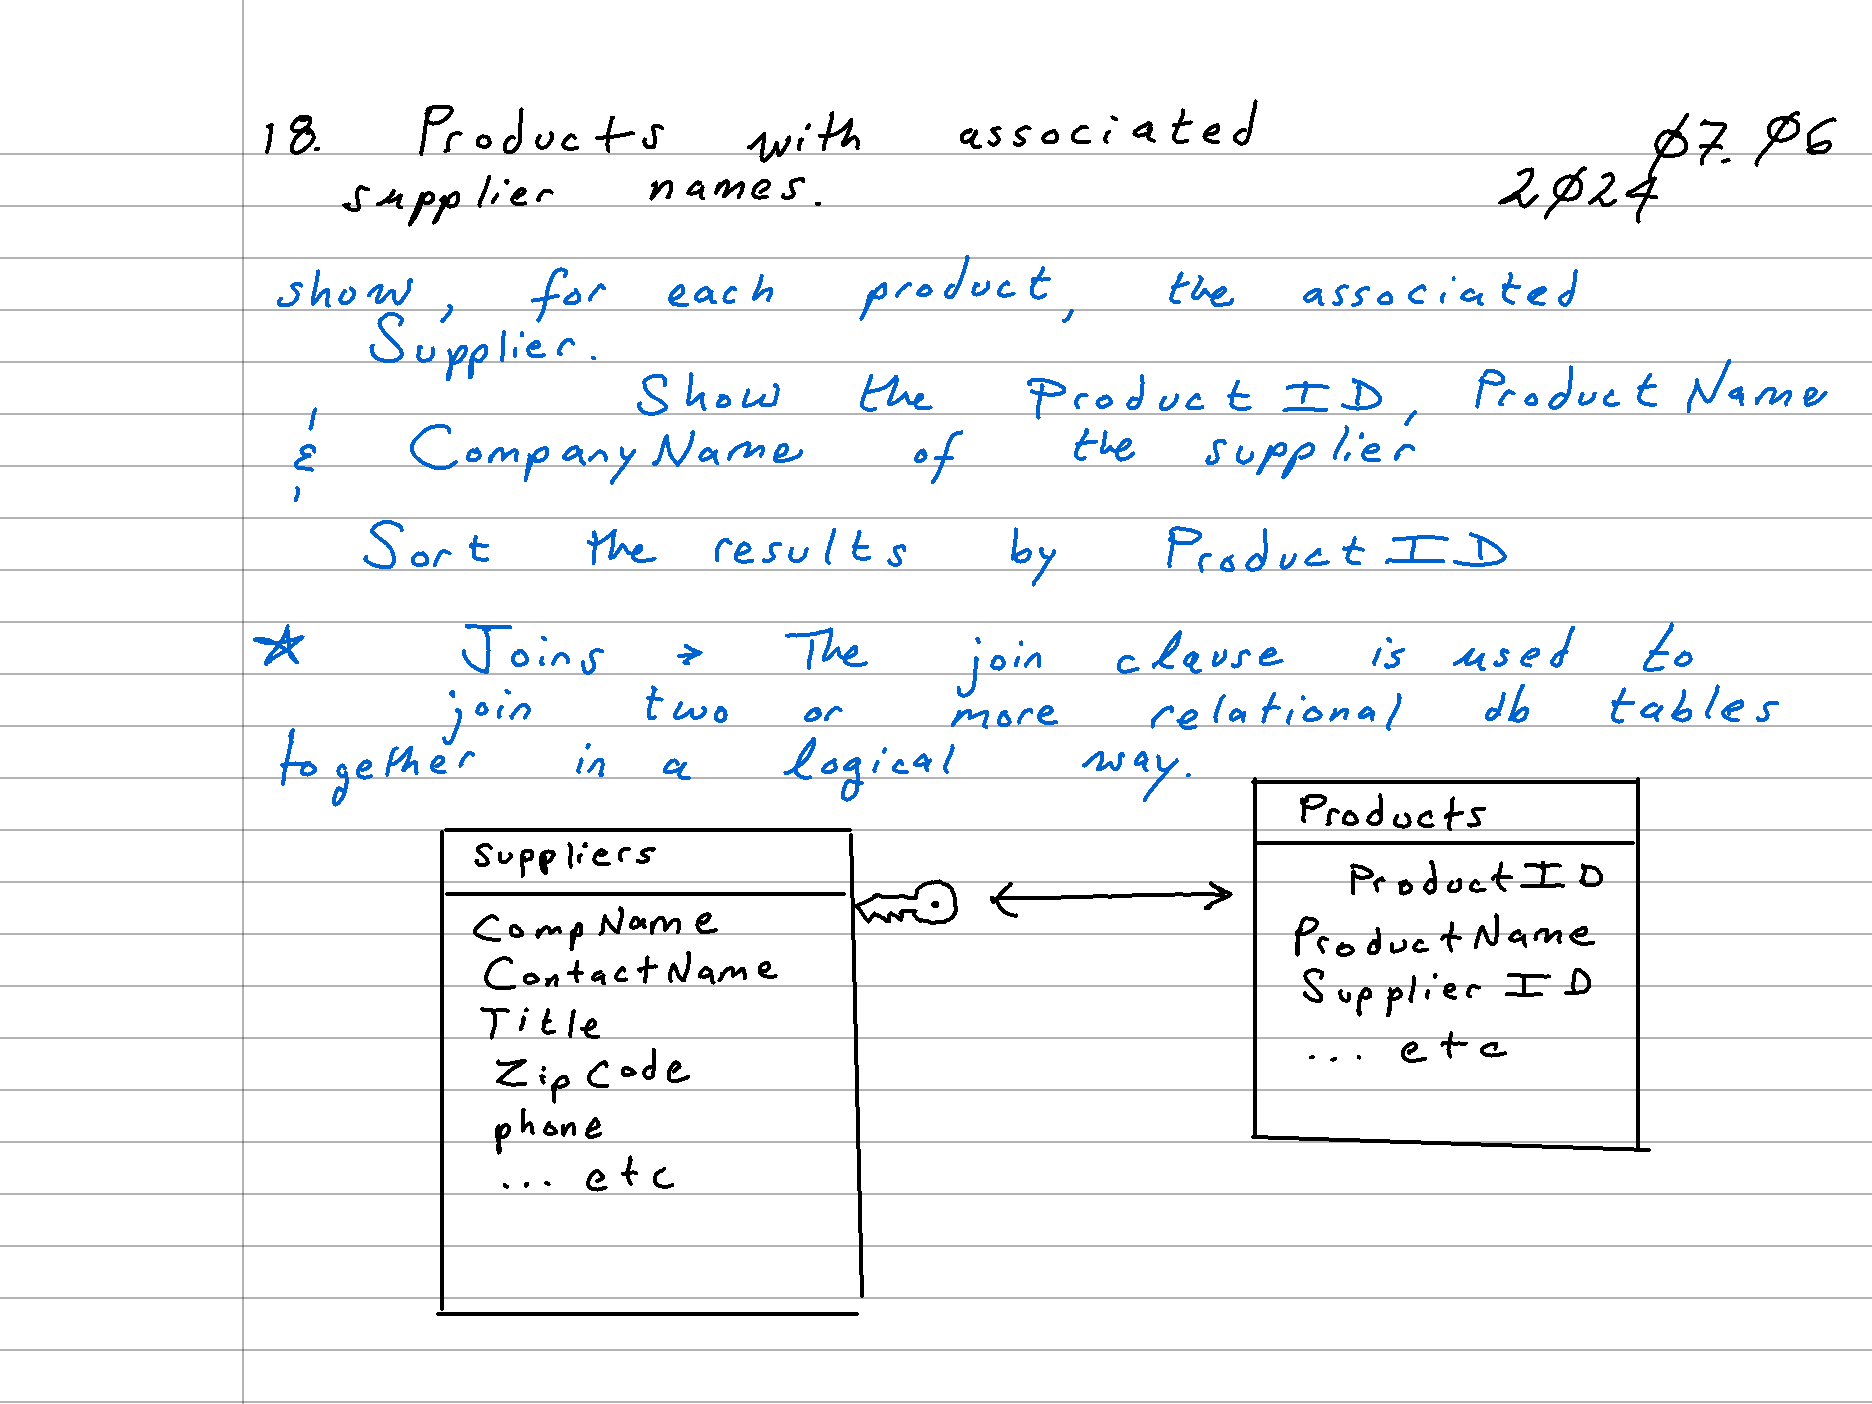 18. Products with associated
supplier names.
07.06
2024
show, for each product, the associated
Supplier.
Show the ProductID, ProductName
& CompanyName of the supplier
Sort the results by ProductID
☆ Joins → The join clause is used to
join two or more relational db tables
together in a logical way.
Suppliers
CompName
ContactName
Title
ZipCode
phone
... etc
Products
ProductID
ProductName
SupplierID
... etc